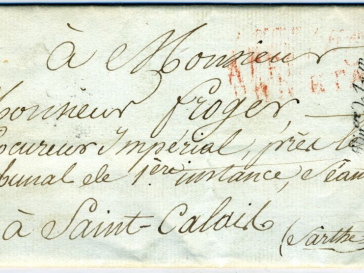 à Monsieur
Monsieur Froger
ocureur Impérial, près le
bunal de 1ère instance, séan
à Saint-Calais
(Sarthe